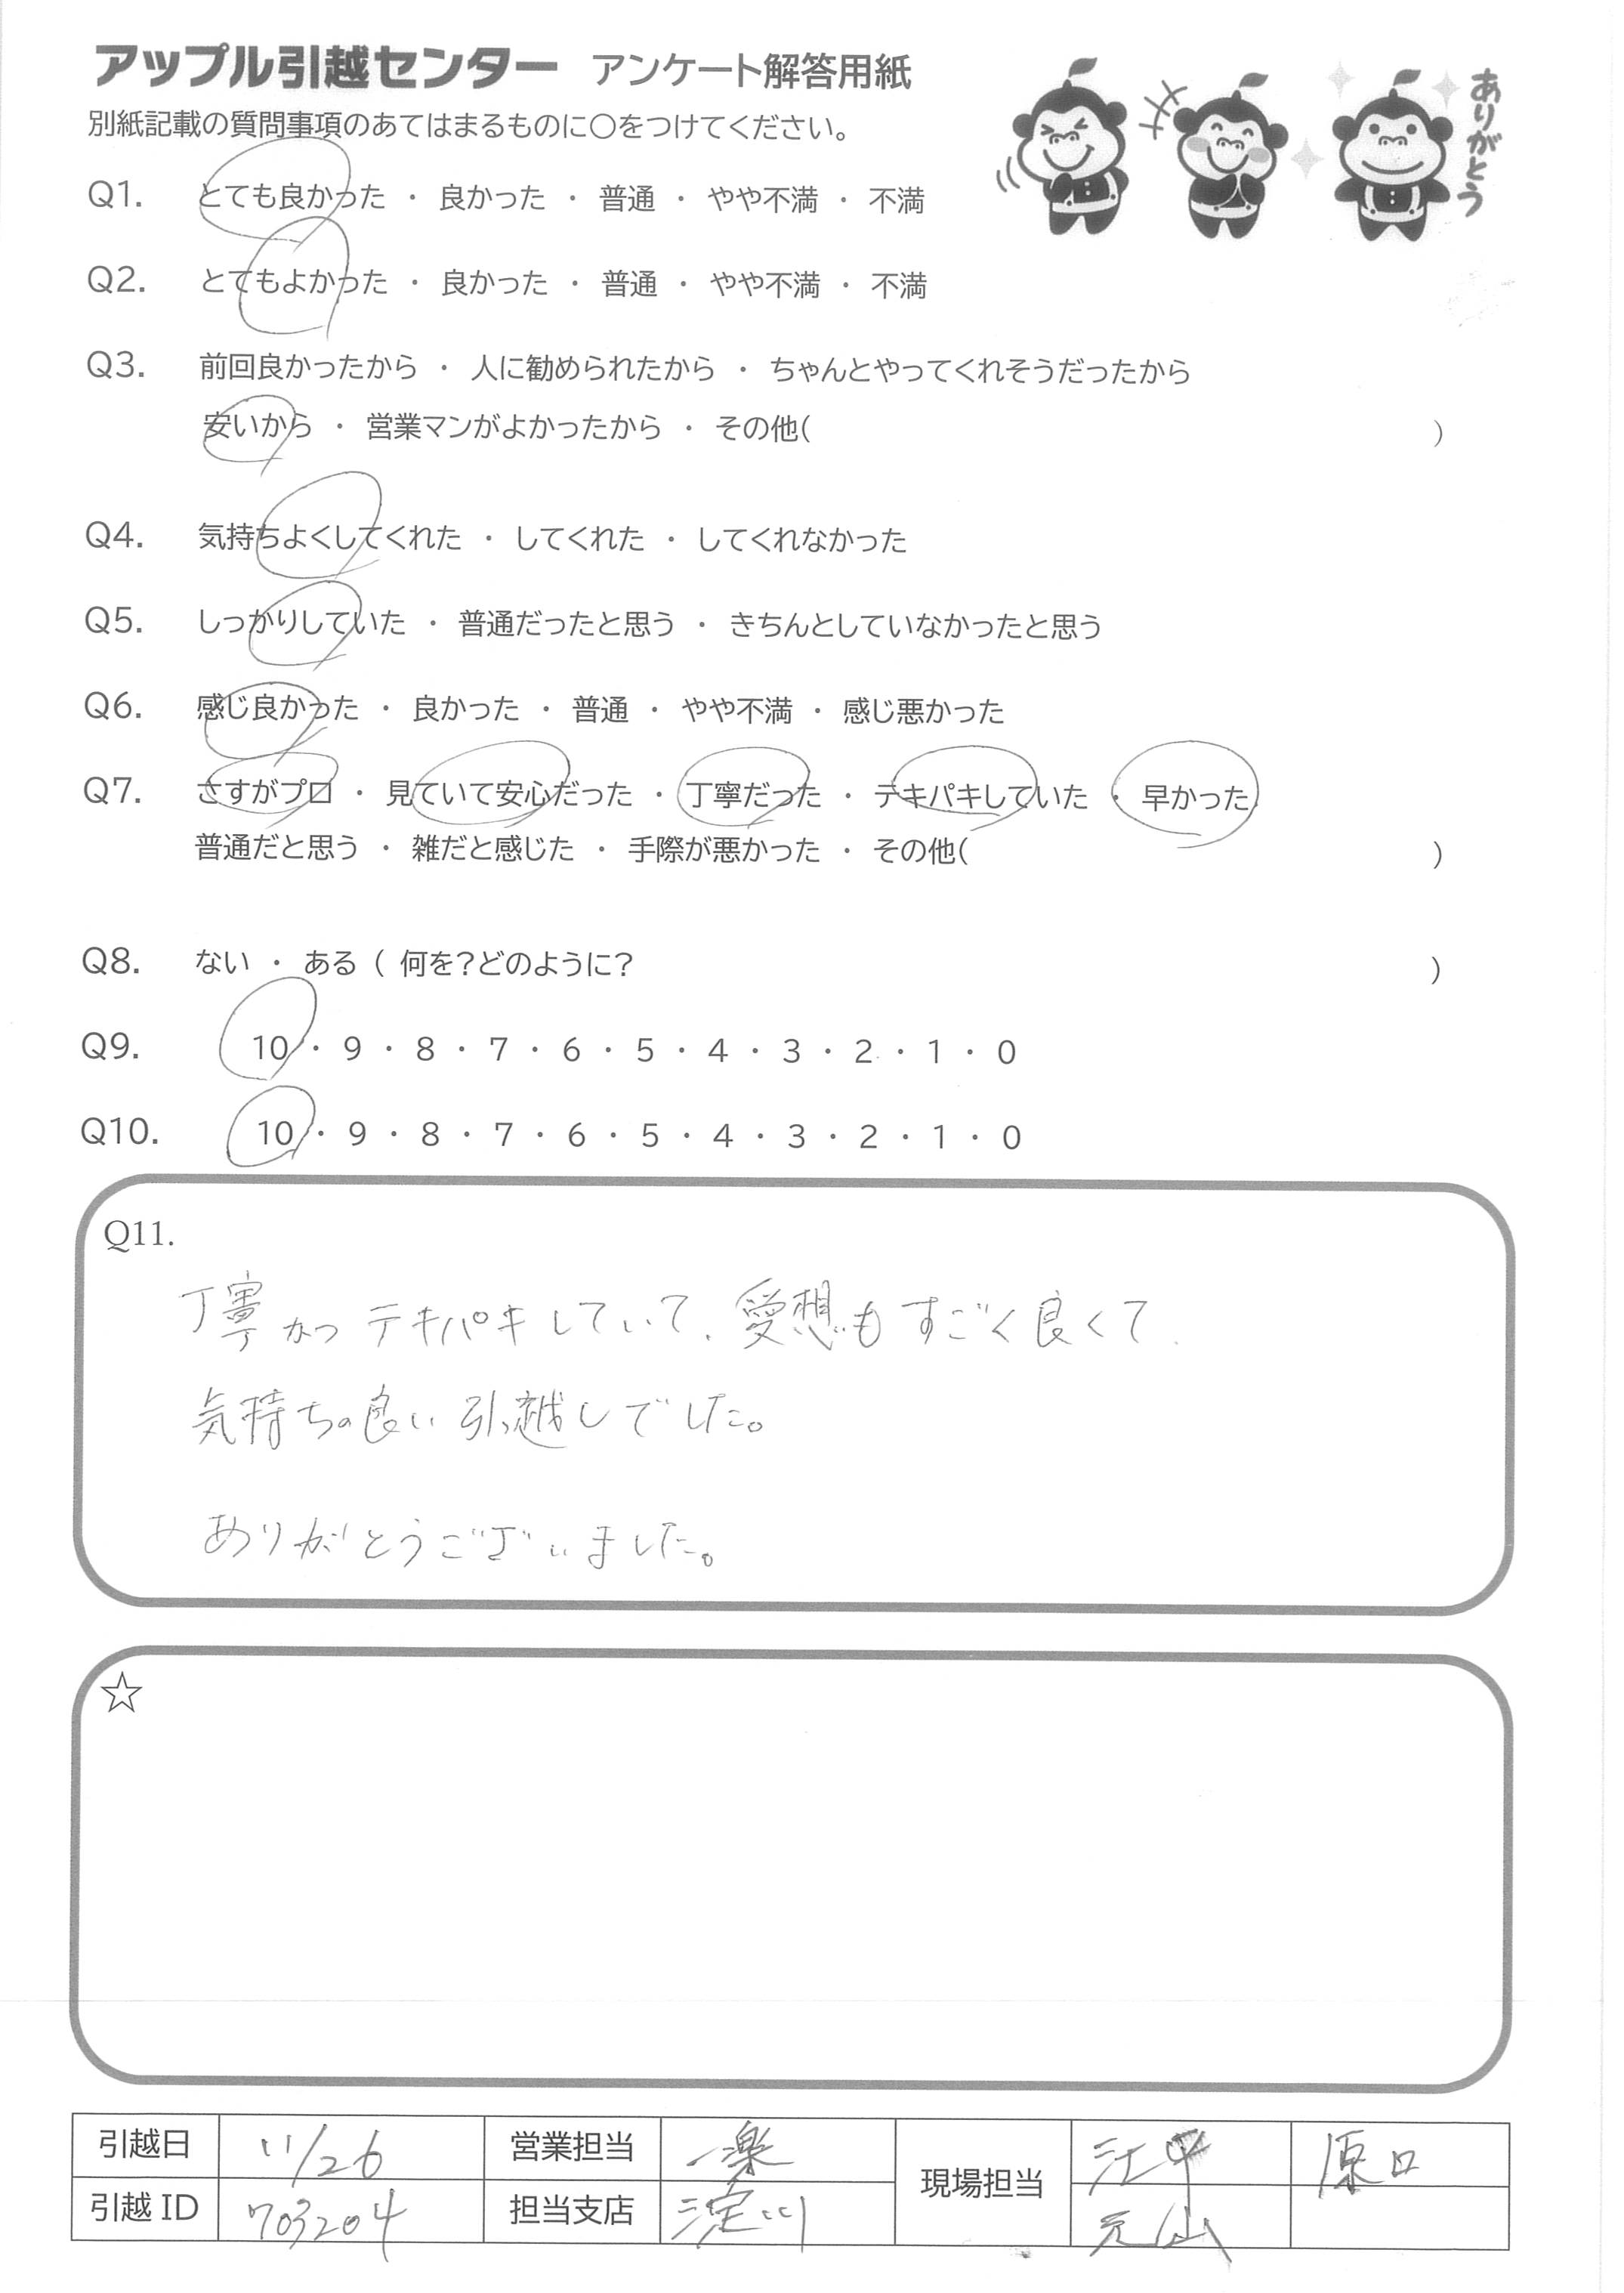 アップル引越センター アンケート解答用紙
ありがとう
別紙記載の質問事項のあてはまるものに○をつけてください。
Q1. とても良かった ・ 良かった ・ 普通 ・ やや不満 ・ 不満
Q2. とてもよかった ・ 良かった ・ 普通 ・ やや不満 ・ 不満
Q3. 前回良かったから ・ 人に勧められたから ・ ちゃんとやってくれそうだったから
安いから ・ 営業マンがよかったから ・ その他( )
Q4. 気持ちよくしてくれた ・ してくれた ・ してくれなかった
Q5. しっかりしていた ・ 普通だったと思う ・ きちんとしていなかったと思う
Q6. 感じ良かった ・ 良かった ・ 普通 ・ やや不満 ・ 感じ悪かった
Q7. さすがプロ ・ 見ていて安心だった ・ 丁寧だった ・ テキパキしていた ・ 早かった
普通だと思う ・ 雑だと感じた ・ 手際が悪かった ・ その他( )
Q8. ない ・ ある ( 何を?どのように? )
Q9. 10 ・ 9 ・ 8 ・ 7 ・ 6 ・ 5 ・ 4 ・ 3 ・ 2 ・ 1 ・ 0
Q10. 10 ・ 9 ・ 8 ・ 7 ・ 6 ・ 5 ・ 4 ・ 3 ・ 2 ・ 1 ・ 0
Q11.
丁寧かつテキパキしていて、愛想もすごく良くて、
気持ちの良い引っ越しでした。
ありがとうございました。
☆
引越日 11/26 営業担当 一楽 現場担当 江平 原口
引越 ID 703204 担当支店 淀川 元山